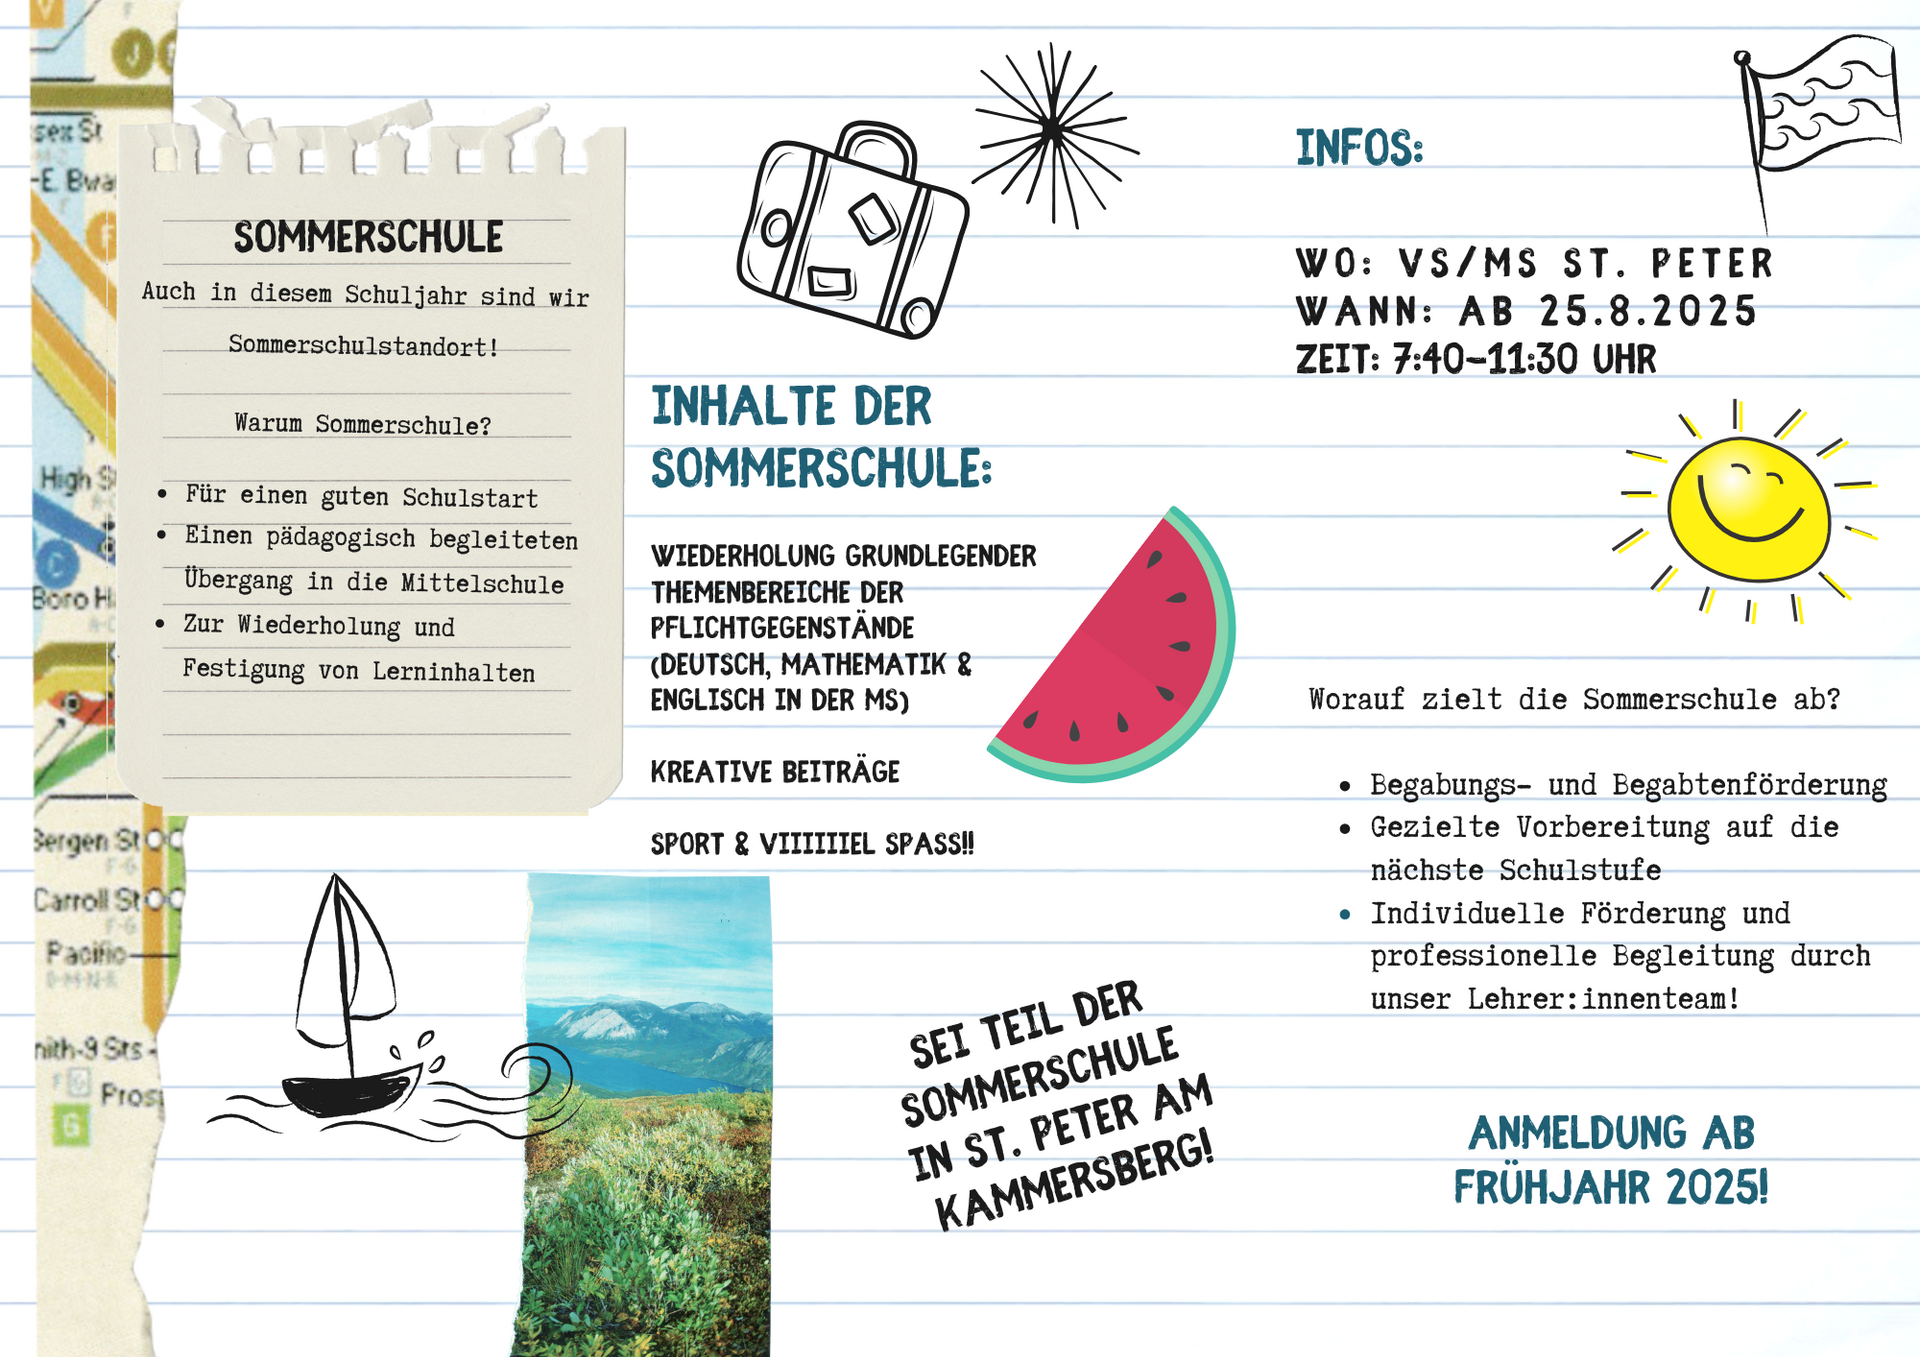 SOMMERSCHULE
Auch in diesem Schuljahr sind wir
Sommerschulstandort!
Warum Sommerschule?
• Für einen guten Schulstart
• Einen pädagogisch begleiteten
Übergang in die Mittelschule
• Zur Wiederholung und
Festigung von Lerninhalten
INHALTE DER
SOMMERSCHULE:
WIEDERHOLUNG GRUNDLEGENDER
THEMENBEREICHE DER
PFLICHTGEGENSTÄNDE
(DEUTSCH, MATHEMATIK &
ENGLISCH IN DER MS)
KREATIVE BEITRÄGE
SPORT & VIIIIIIEL SPASS!!
SEI TEIL DER
SOMMERSCHULE
IN ST. PETER AM
KAMMERSBERG!
INFOS:
WO: VS/MS ST. PETER
WANN: AB 25.8.2025
ZEIT: 7:40-11:30 UHR
Worauf zielt die Sommerschule ab?
• Begabungs- und Begabtenförderung
• Gezielte Vorbereitung auf die
nächste Schulstufe
• Individuelle Förderung und
professionelle Begleitung durch
unser Lehrer:innenteam!
ANMELDUNG AB
FRÜHJAHR 2025!
J
sex St
-E. Bwa
High S
C
Boro H
Bergen St
F-G
Carroll St
F-G
Pacific
nith-9 Sts
Pros
G